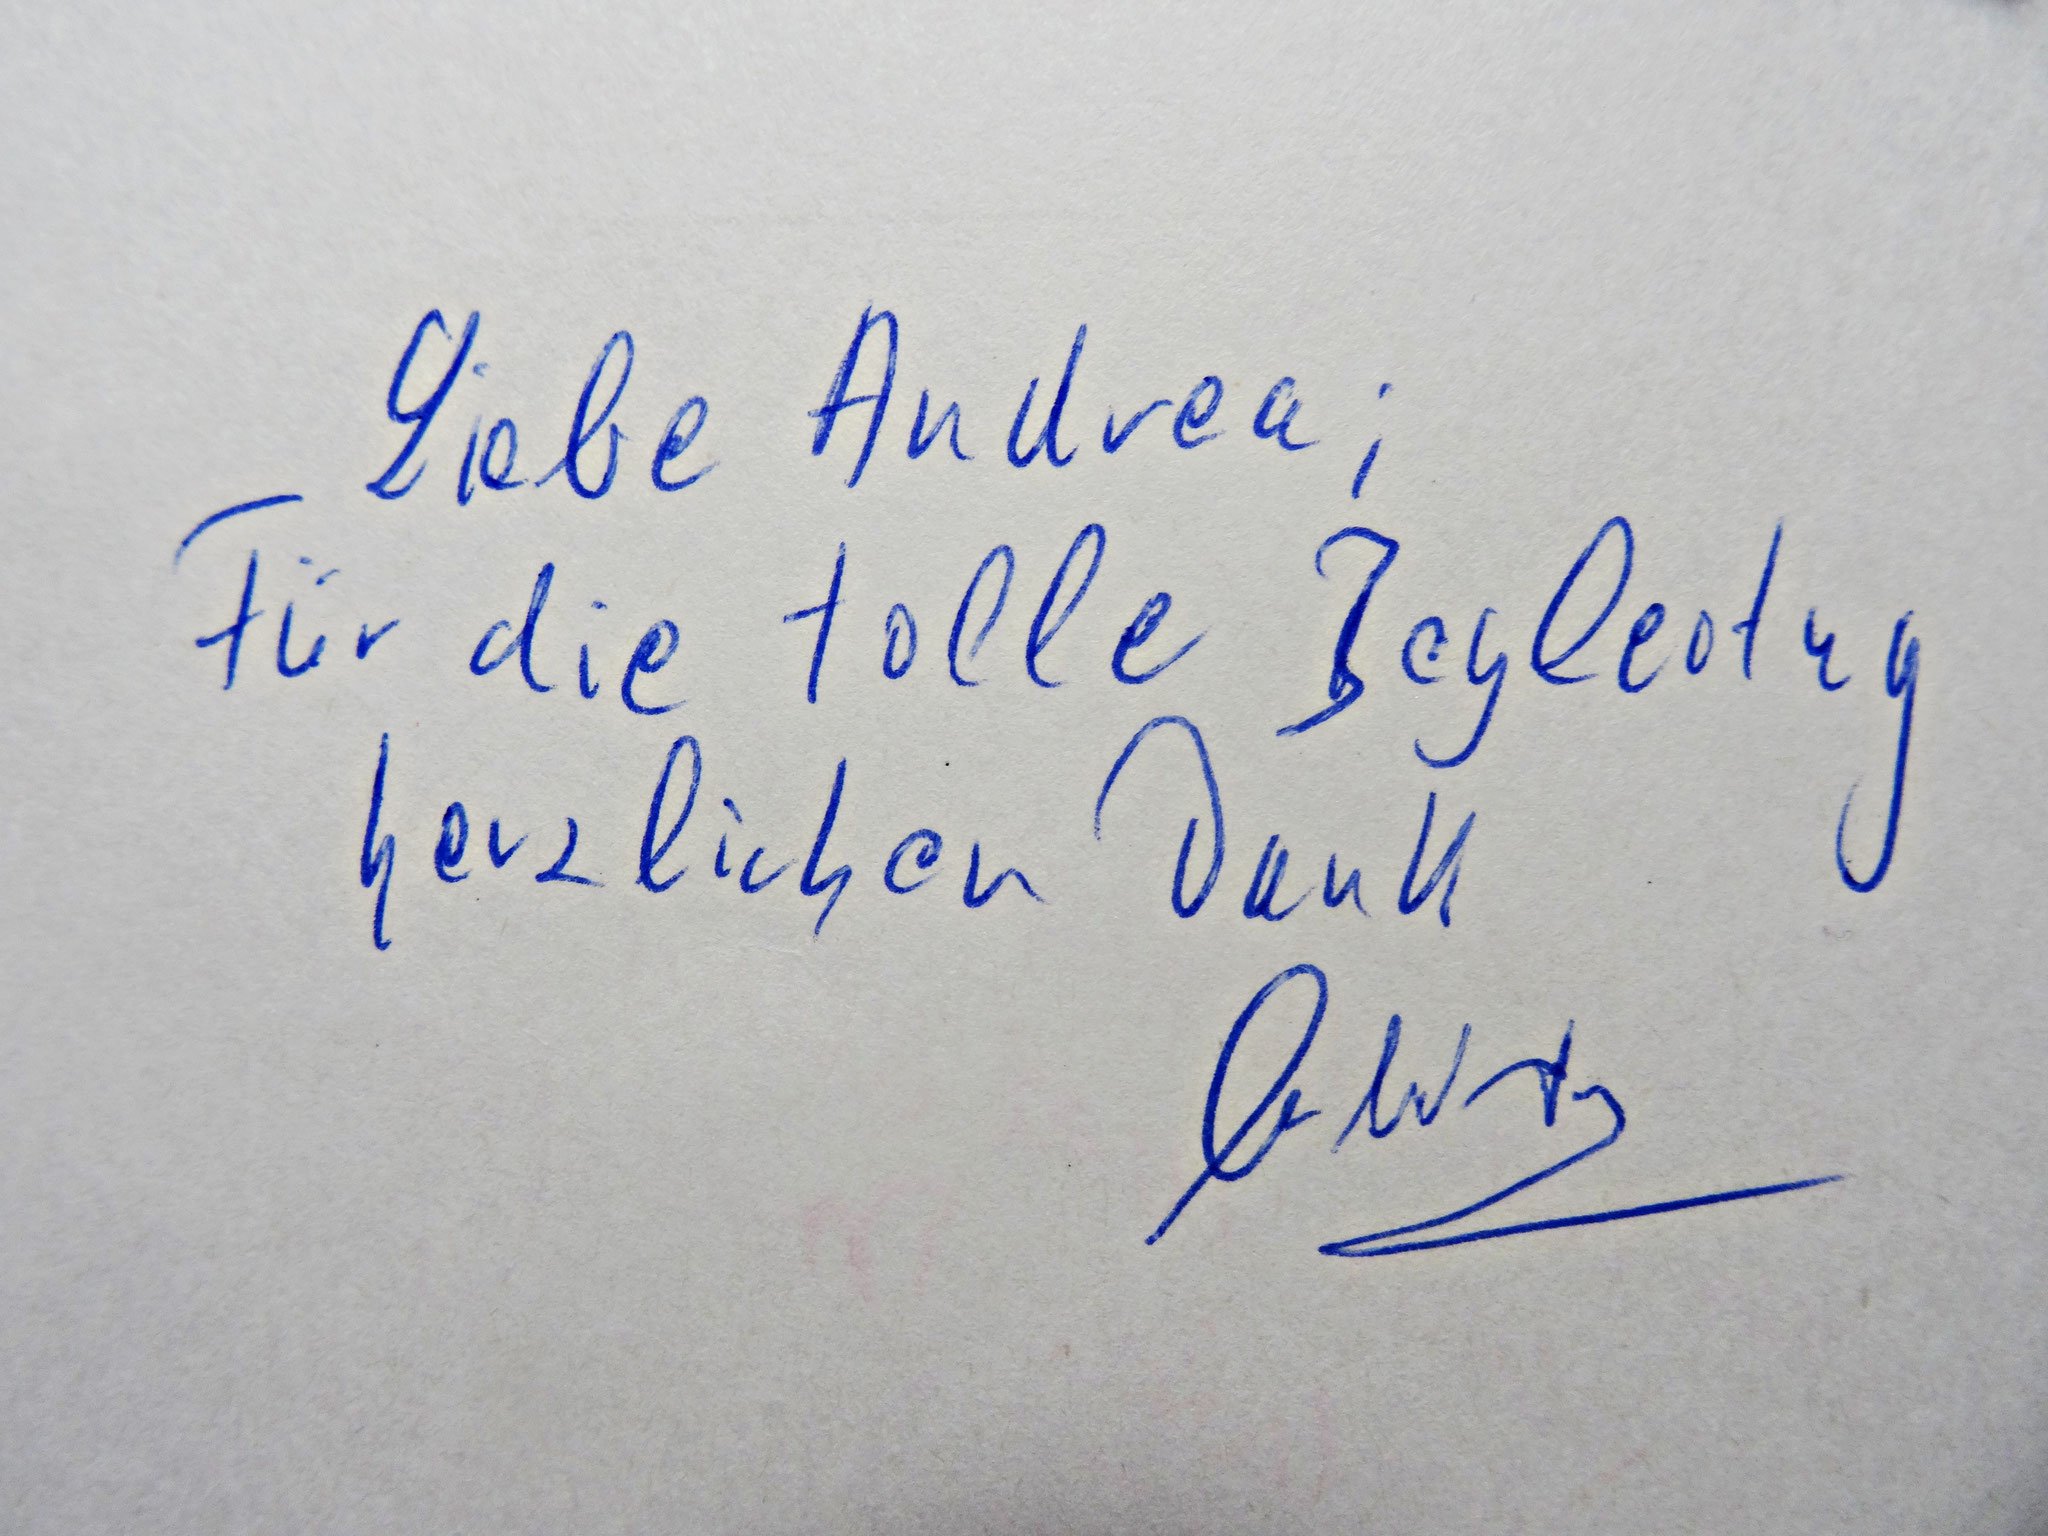 Liebe Andrea,
Für die tolle Begleitung
herzlichen Dank